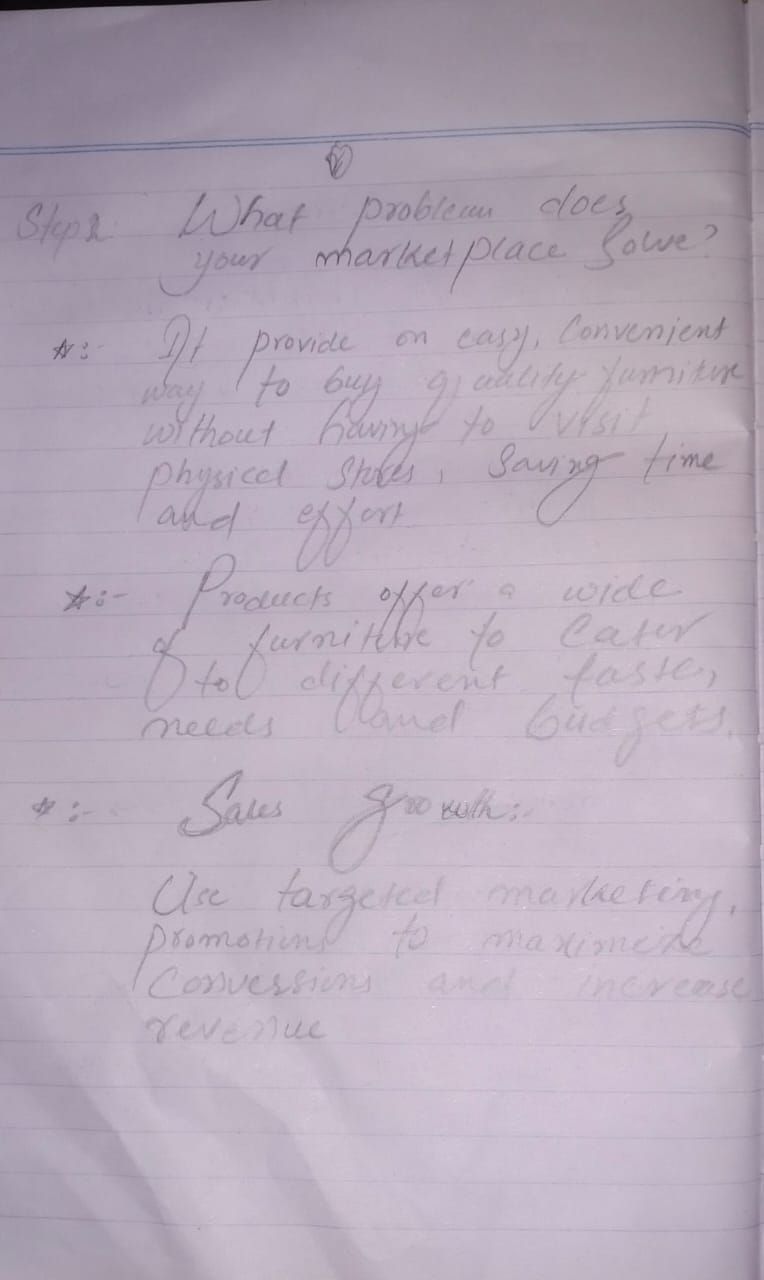 Step 2 What problem does
your marketplace Solve?
☆:- It provide an easy, Convenient
way to buy quality furniture
without having to visit
physical Stores, Saving time
and effort
☆:- Products offer a wide
of furniture to Cater
to different taste,
needs and budgets.
☆:- Sales growth:
Use targeted marketing,
promotions to maximize
Conversions and increase
revenue